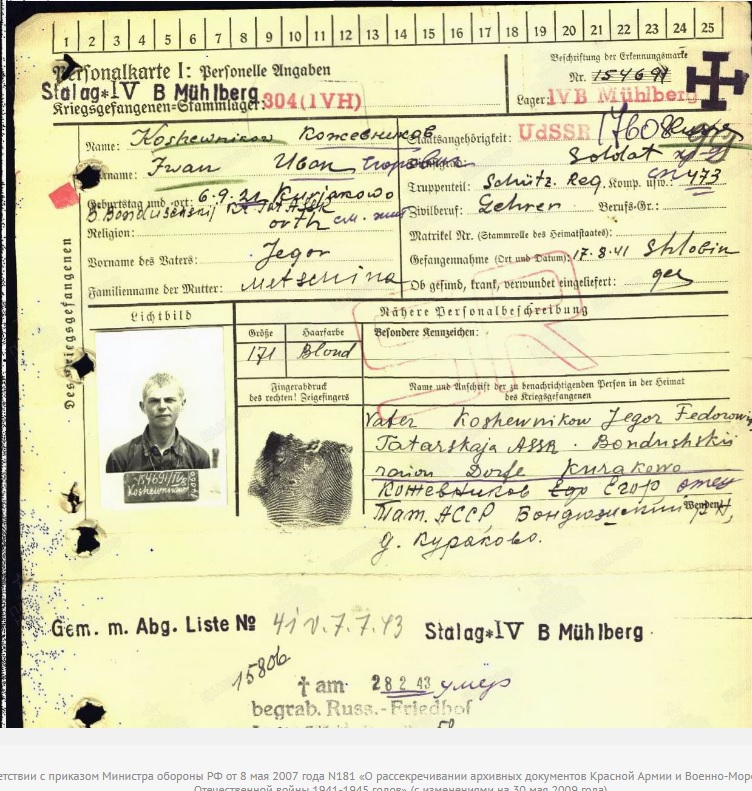 1 2 3 4 5 6 7 8 9 10 11 12 13 14 15 16 17 18 19 20 21 22 23 24 25
Personalkarte I: Personelle Angaben
Beschriftung der Erkennungsmarke
Stalag*IV B Mühlberg
Nr. 154691
Kriegsgefangenen-Stammlager: 304(IVH)
Lager: IVB Mühlberg
Des Kriegsgefangenen
Name: Koshewnikow Кожевников
Staatsangehörigkeit: UdSSR
Vorname: Iwan Иван
Soldat
Geburtstag und -ort: 6.9.21 Kurjakowo
Truppenteil: Schütz. Reg. Komp. usw.: 473
Zivilberuf: Lehrer Berufs-Gr.:
Religion: orth
Matrikel Nr. (Stammrolle des Heimatstaates):
Vorname des Vaters: Jegor
Gefangennahme (Ort und Datum): 17.8.41 Shlobin
Familienname der Mutter: Metschina
Ob gesund, krank, verwundet eingeliefert: ges
Lichtbild
Nähere Personalbeschreibung
Größe
Haarfarbe
Besondere Kennzeichen:
171
Blond
Fingerabdruck
des rechten! Zeigefingers
Name und Anschrift der zu benachrichtigenden Person in der Heimat
des Kriegsgefangenen
Vater Koshewnikow Jegor Fedorowitsch
Tatarskaja ASSR. Bondushskij
raion Dorf Kurakowo
Кожевников Егор отец
Тат. АССР Бондюжский р-н,
Wenden!
д. Кураково.
Koshewnikow
Gem. m. Abg. Liste № 41 v. 7.7.43 Stalag*IV B Mühlberg
15806
† am 28 2 43 умер
begrab. Russ.-Friedhof
етствии с приказом Министра обороны РФ от 8 мая 2007 года N181 «О рассекречивании архивных документов Красной Армии и Военно-Морс
Отечественной войны 1941-1945 годов» (с изменениями на 30 мая 2009 года)